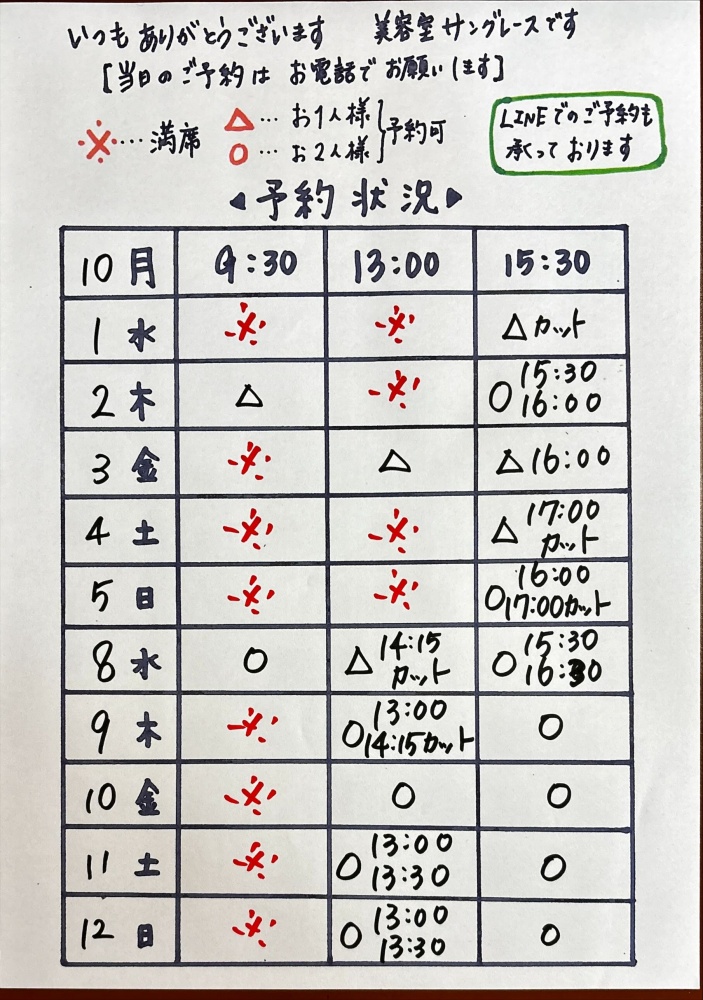 いつもありがとうございます 美容室サングレースです
[当日のご予約はお電話でお願いします]
※…満席
△…お1人様
○…お2人様
予約可
LINEでのご予約も
承っております
◀予約状況▶
10月 9:30 13:00 15:30
1 水 ※ ※ △カット
2 木 △ ※ ○15:30 16:00
3 金 ※ △ △16:00
4 土 ※ ※ △17:00 カット
5 日 ※ ※ ○16:00 17:00カット
8 水 ○ △14:15 カット ○15:30 16:30
9 木 ※ ○13:00 14:15カット ○
10 金 ※ ○ ○
11 土 ※ ○13:00 13:30 ○
12 日 ※ ○13:00 13:30 ○